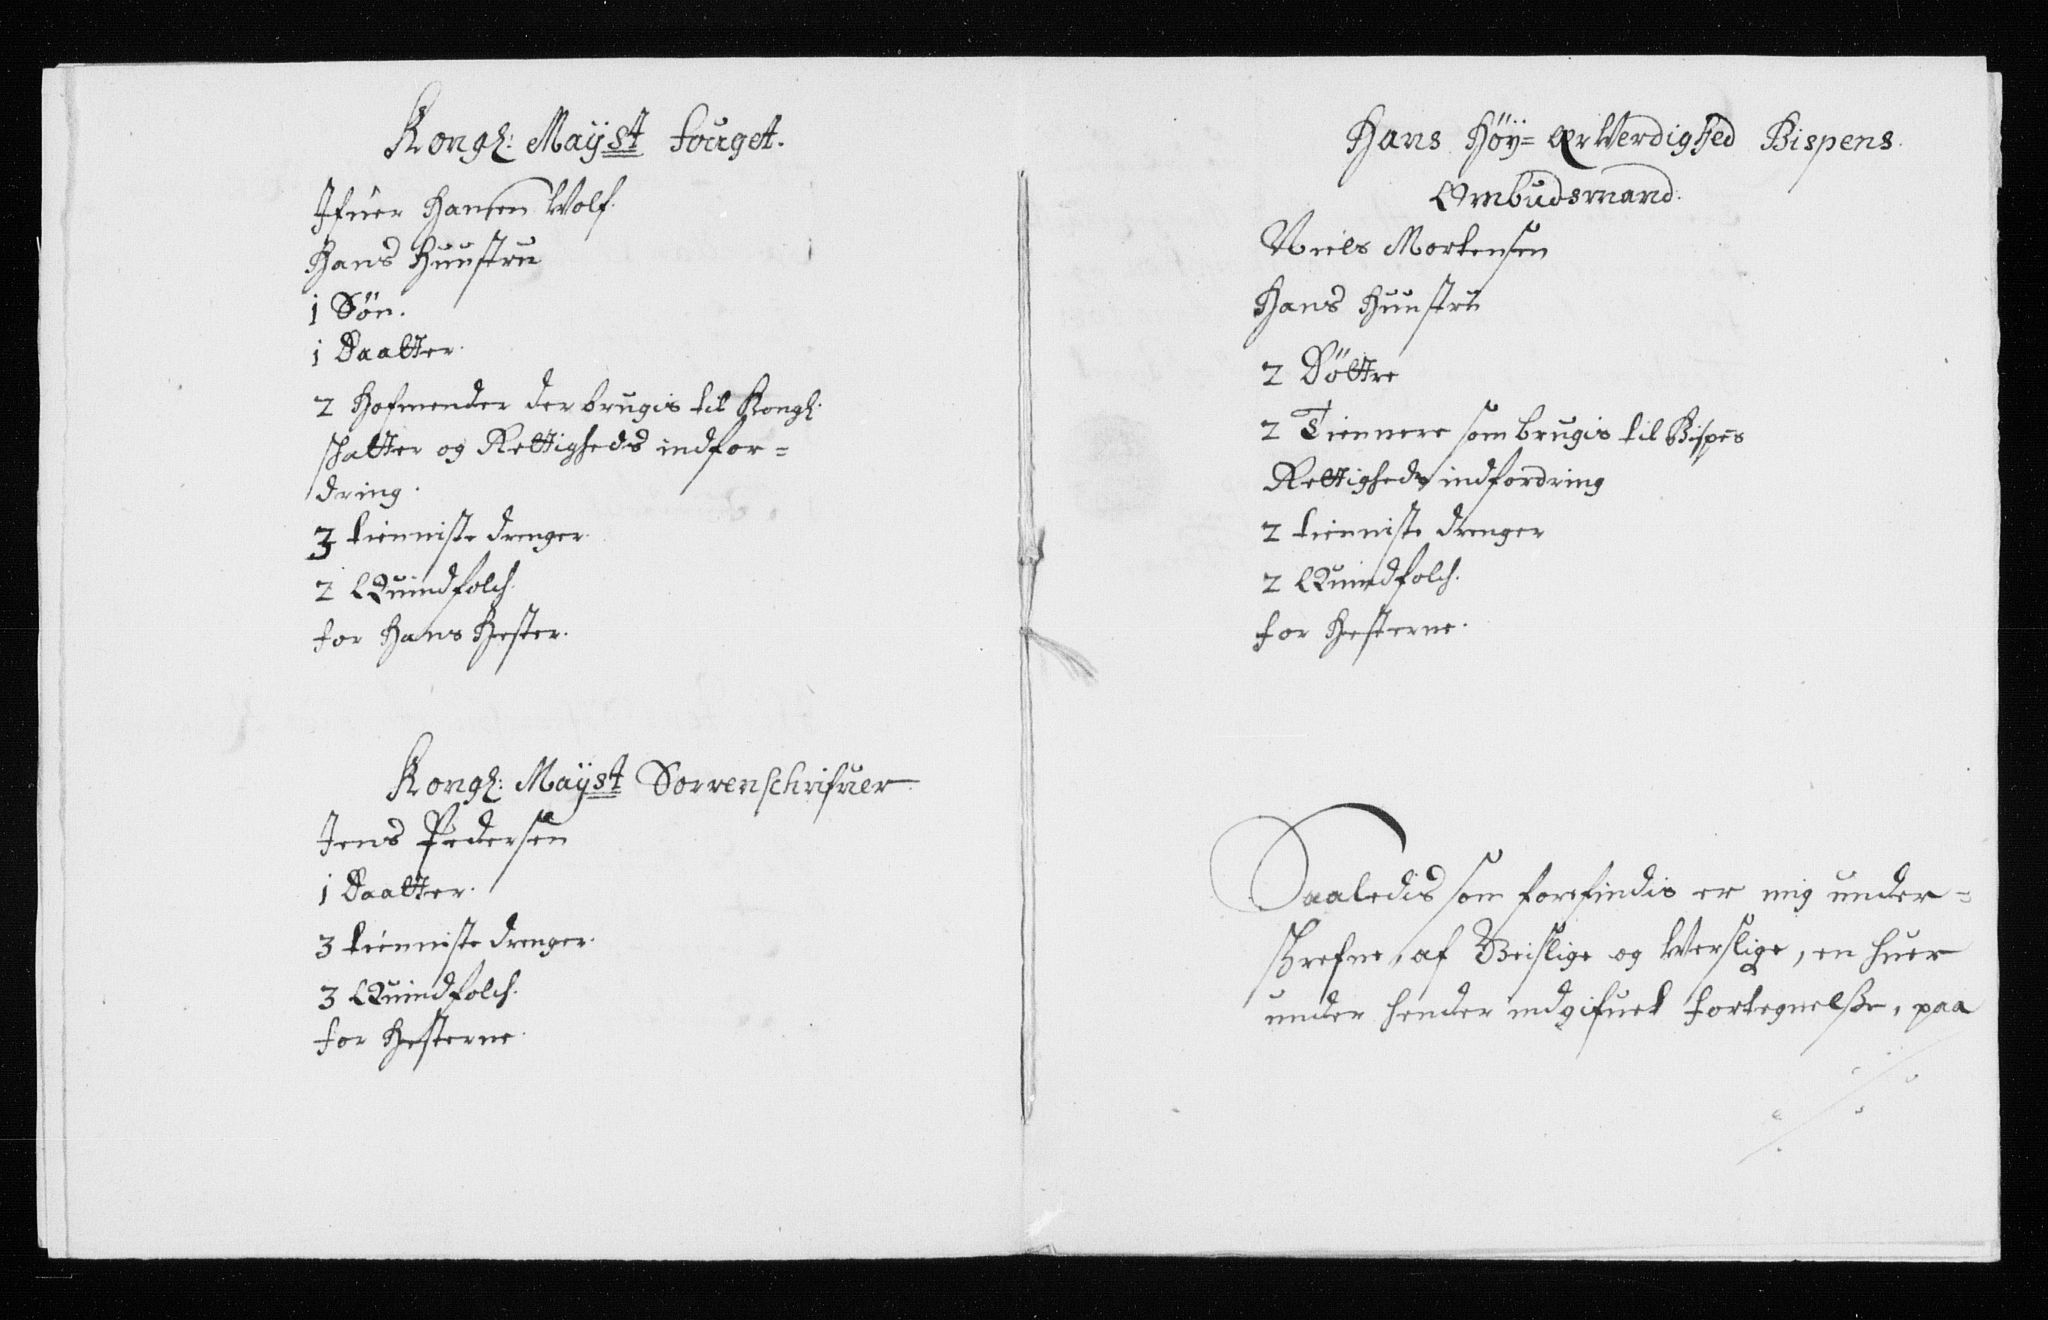 Kongl: Maÿst fouget.
Ifuer Hansen Wolf.
Hans Huustru
1 Sön.
1 Daatter.
2 Hofmender der brugis til Kongl:
skatter og Rettigheds indfor=
dring.
3 tienniste drenger.
2 Quindfolch.
for Hans Hester.
Kongl: Maÿst Sorrenschrifuer
Jens Pedersen
1 Daatter.
3 tienniste drenger.
3 Quindfolch.
for Hesterne.
Hans Höÿ= ærWerdighed Bispens
Ombudsmand.
Niels Mortensen
Hans Huustru
2 Döttre
2 Tiennere som brugis til Bispes
Rettigheds indfordring
2 tienniste drenger
2 Quindfolch.
for Hesterne.
Saaledis som forefindis er mig under=
skrefne, af Geislige og Werslige, en huer
under hender indgifuet fortegnelsse, paa